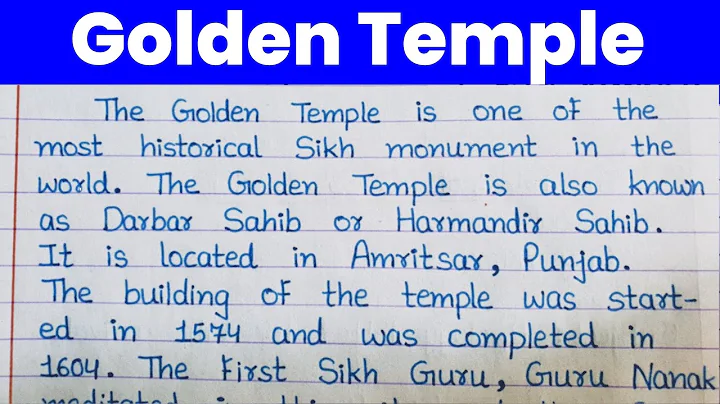 Golden Temple
The Golden Temple is one of the
most historical Sikh monument in the
world. The Golden Temple is also known
as Darbar Sahib or Harmandir Sahib.
It is located in Amritsar, Punjab.
The building of the temple was start-
ed in 1574 and was completed in
1604. The First Sikh Guru, Guru Nanak
meditated in this